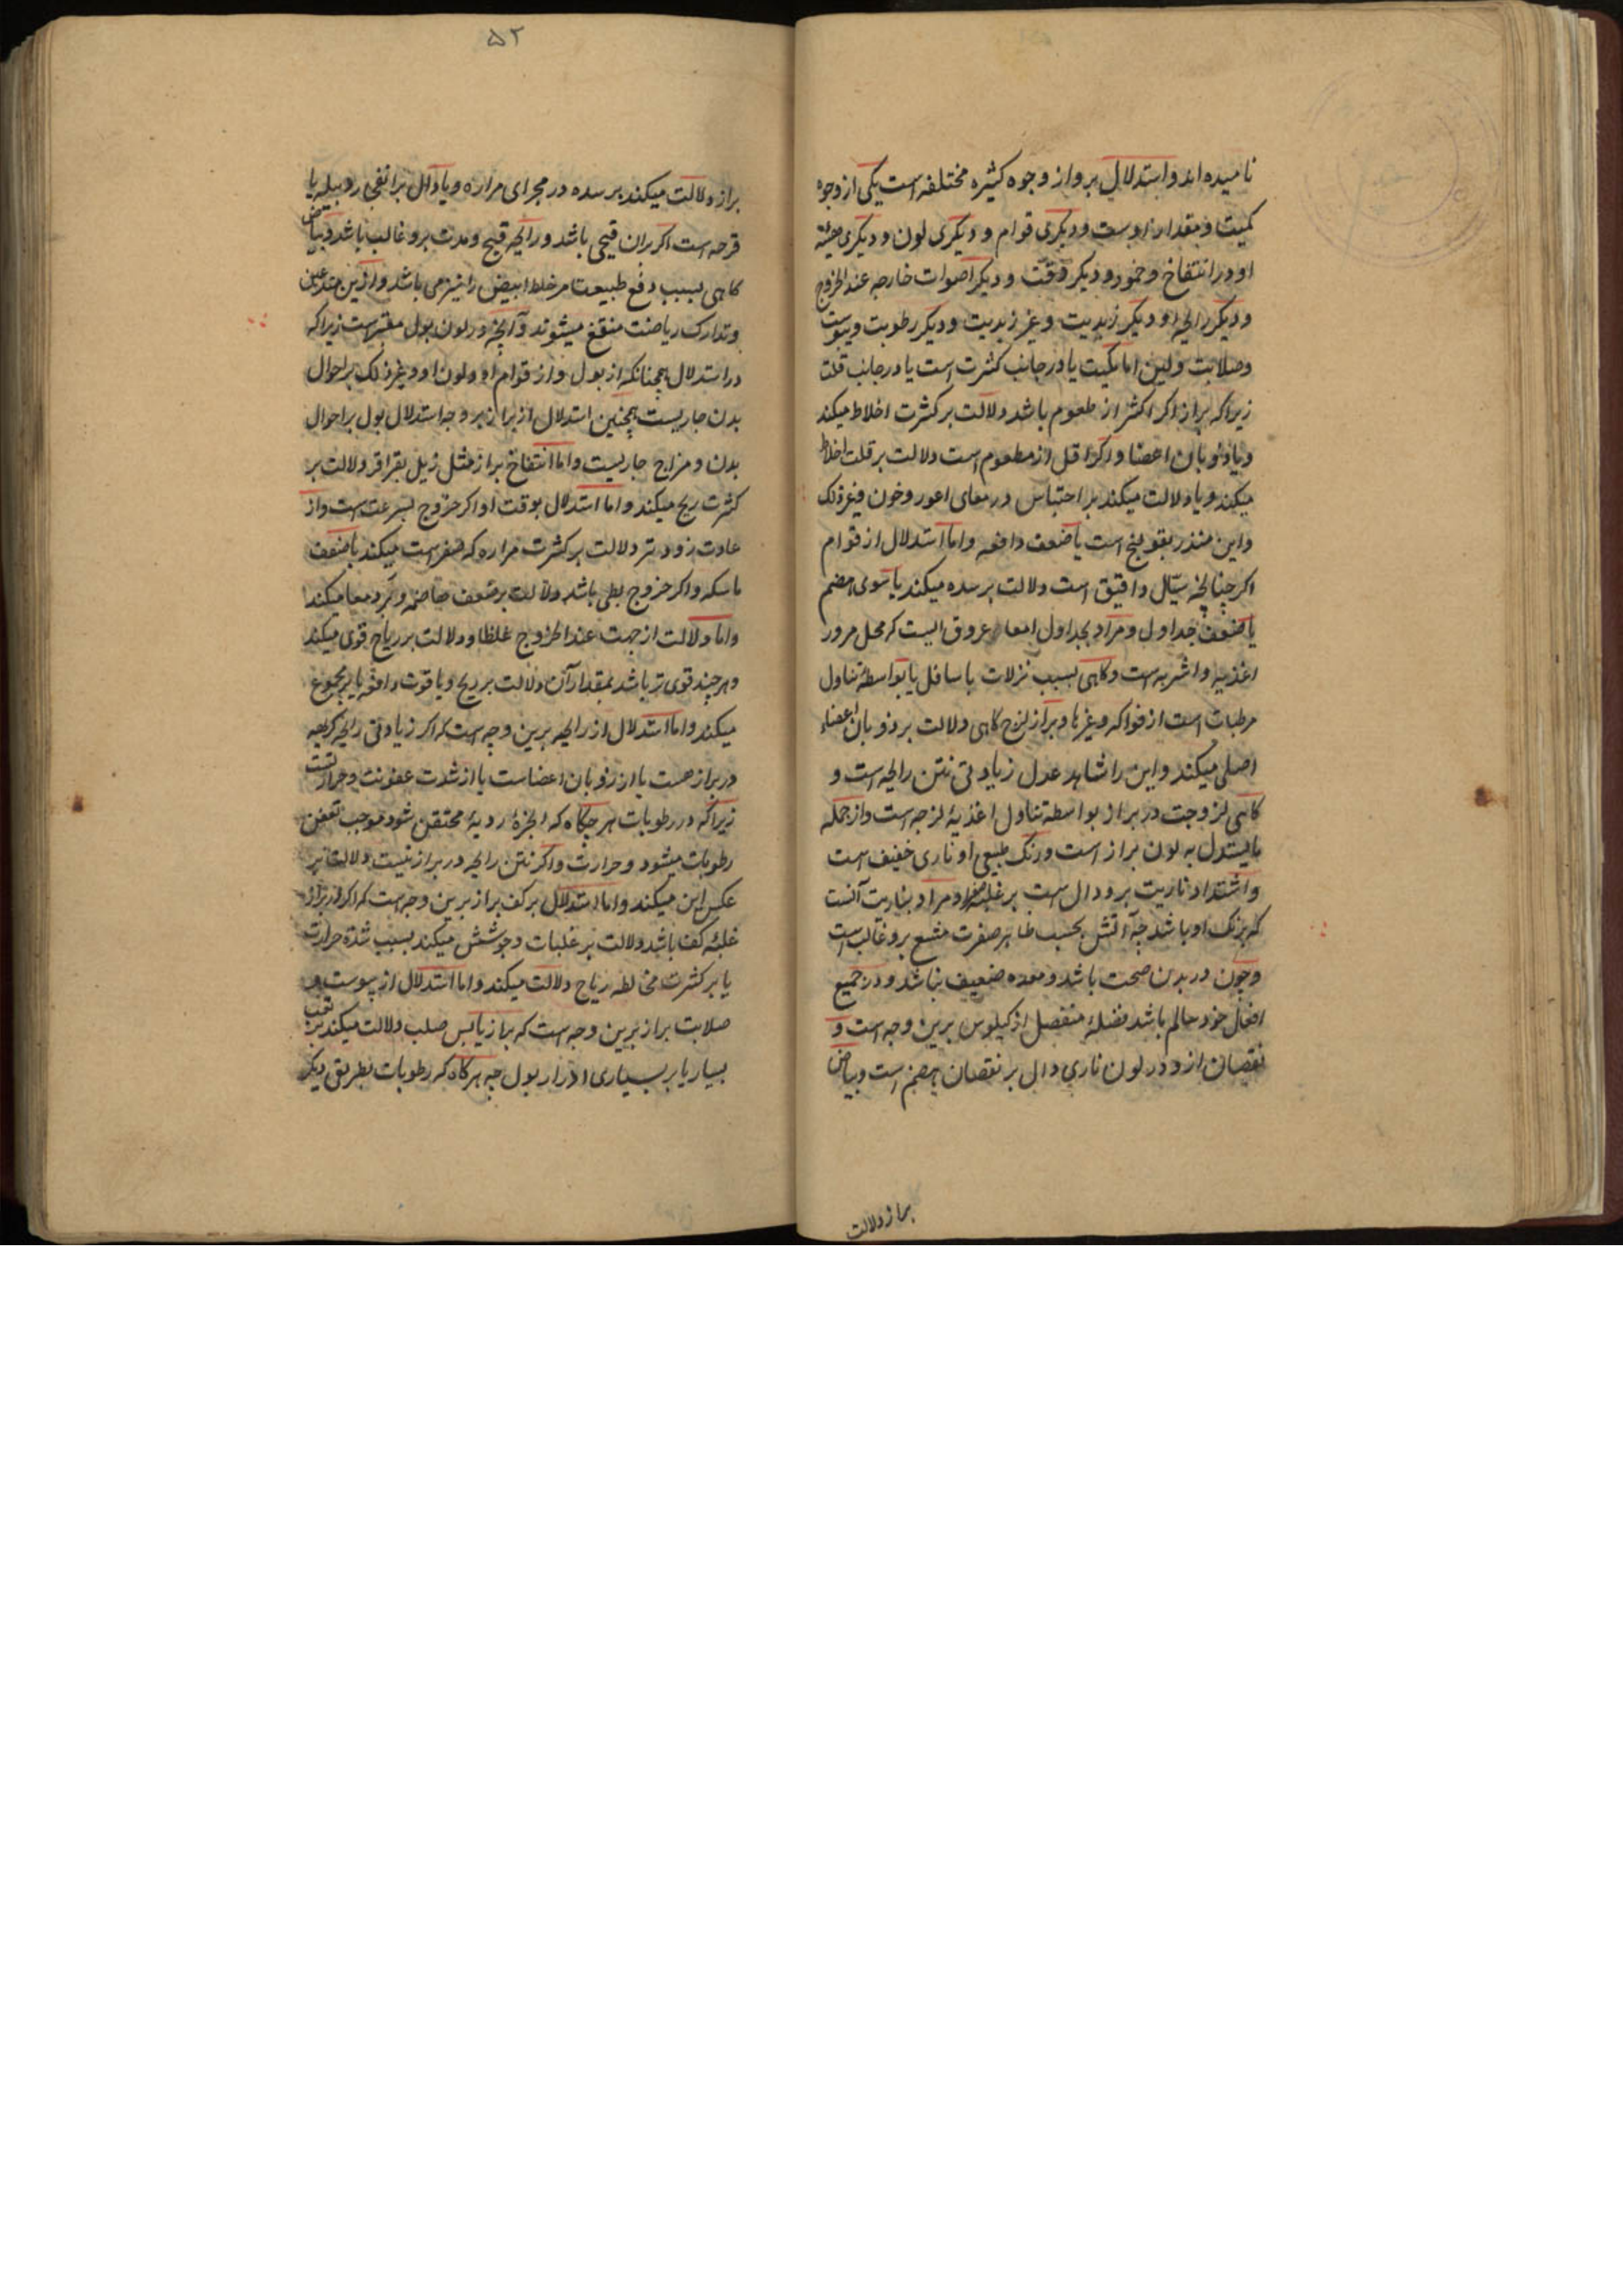 نامیده اند و استدلال برو از وجوه کثیره مختلفه است یکی از وجوه
کمیت و مقدار اوست و دیگری قوام و دیگری لون و دیگری هیئة
او در انتفاخ و خمود و دیگر وقت و دیگر اصوات خارجه عند الخروج
و دیگر رایحه او دیگر زبدیت و غیر زبدیت و دیگر رطوبت و یبوست
و صلابت و لین اما کمیت یا در جانب کثرت است یا در جانب قلت
زیرا که براز اکر اکثر از طعوم باشد دلالت بر کثرت اخلاط میکند
و یا ذوبان اعضا و اکر اقل از مطعوم است دلالت بر قلت اخلاط
میکند و یا دلالت میکند بر احتباس در معای اعور و غیر ذلک
و این منذر بقولنج است یا ضعف دافعه و اما استدلال از قوام
اکر چنانچه سیّال و رقیق است دلالت بر سده میکند یا سوی هضم
یا ضعف جداول و مراد بجداول امعا عروق الیست که محل مرور
اغذیه و اشربه است و کاهی بسبب نزلات باسافل یا بواسطه تناول
مرطبات است از فواکه و غیرها و براز لزج کاهی دلالت بر ذوبان اعضاء
اصلی میکند و این را شاهد عدل زیادتی نتن رایحه است و
کاهی لزوجت در براز بواسطه تناول اغذیهٔ لزجه است و از جمله
ما یستدل به لون براز است و رنک طبیعی او ناری خفیف است
و اشتداد ناریت برو دال است بر غلبهٔ صفرا و مراد بناریت آنست
که برنک او باشد چه آتش بحسب ظاهر صفرت مشبع برو غالب است
و چون در بدن صحت باشد و معده ضعیف نباشد و در جمیع
افعال خود سالم باشد فضلهٔ منفصل از کیلوس برین وجه است و
نقصان ازو در لون ناری دال بر نقصان هضم است و بیاض
براز دلالت
۵۲
براز دلالت میکند بر سده در مجرای مراره و یا دال بر انفجار دبیله یا
قرحه است اکر بران قیحی باشد و رایحه قیح و مدت برو غالب باشد و بیاض
کاهی بسبب دفع طبیعت مر خلط ابیض را نیز می باشد و ازین
و تدارک ریاضت منتفع میشوند و آنچه در لون بول معتبر است زیرا که
در استدلال همچنانکه از بول و از قوام او و لون او و غیر ذلک بر احوال
بدن جاریست همچنین استدلال از براز بر وجه استدلال بول بر احوال
بدن و مزاج جاریست و اما انتفاخ براز مثل زبل بقر اقر دلالت بر
کثرت ریح میکند و اما استدلال بوقت او اکر خروج بسرعت است و از
عادت زودتر دلالت بر کثرت مراره که صفراست میکند یا ضعف
ماسکه و اکر خروج بطی باشد دلالت بر ضعف هاضمه و برد معا میکند
و اما دلالت از جهت عند الخروج غلظا و دلالت بر ریاح قوی میکند
و هر چند قوی تر باشد بمقدار آن دلالت بر ریح و یا قوت دافعه یا بر مجموع
میکند و اما استدلال از رایحه برین وجه است که اکر زیادتی رایحه کریهه
در براز هست یا از ذوبان اعضاست یا از شدت عفونت و حرارتست
زیرا که در رطوبات هر چکاه که ابخرهٔ ردیهٔ محتقن شود موجب تعفن
رطوبات میشود و حرارت و اکر نتن رایحه در براز نیست دلالت بر
عکس این میکند و اما استدلال بر کف براز برین وجه است که اکر در براز
غلبهٔ کف باشد دلالت بر غلبات و جوشش میکند بسبب شدة حرارت
یا بر کثرت مخالطه ریاح دلالت میکند و اما استدلال از یبوست و
صلابت براز برین وجه است که براز یابس صلب دلالت میکند بر تعب
بسیار یا بر بسیاری ادرار بول چه هر کاه که رطوبات بطریق دیگر